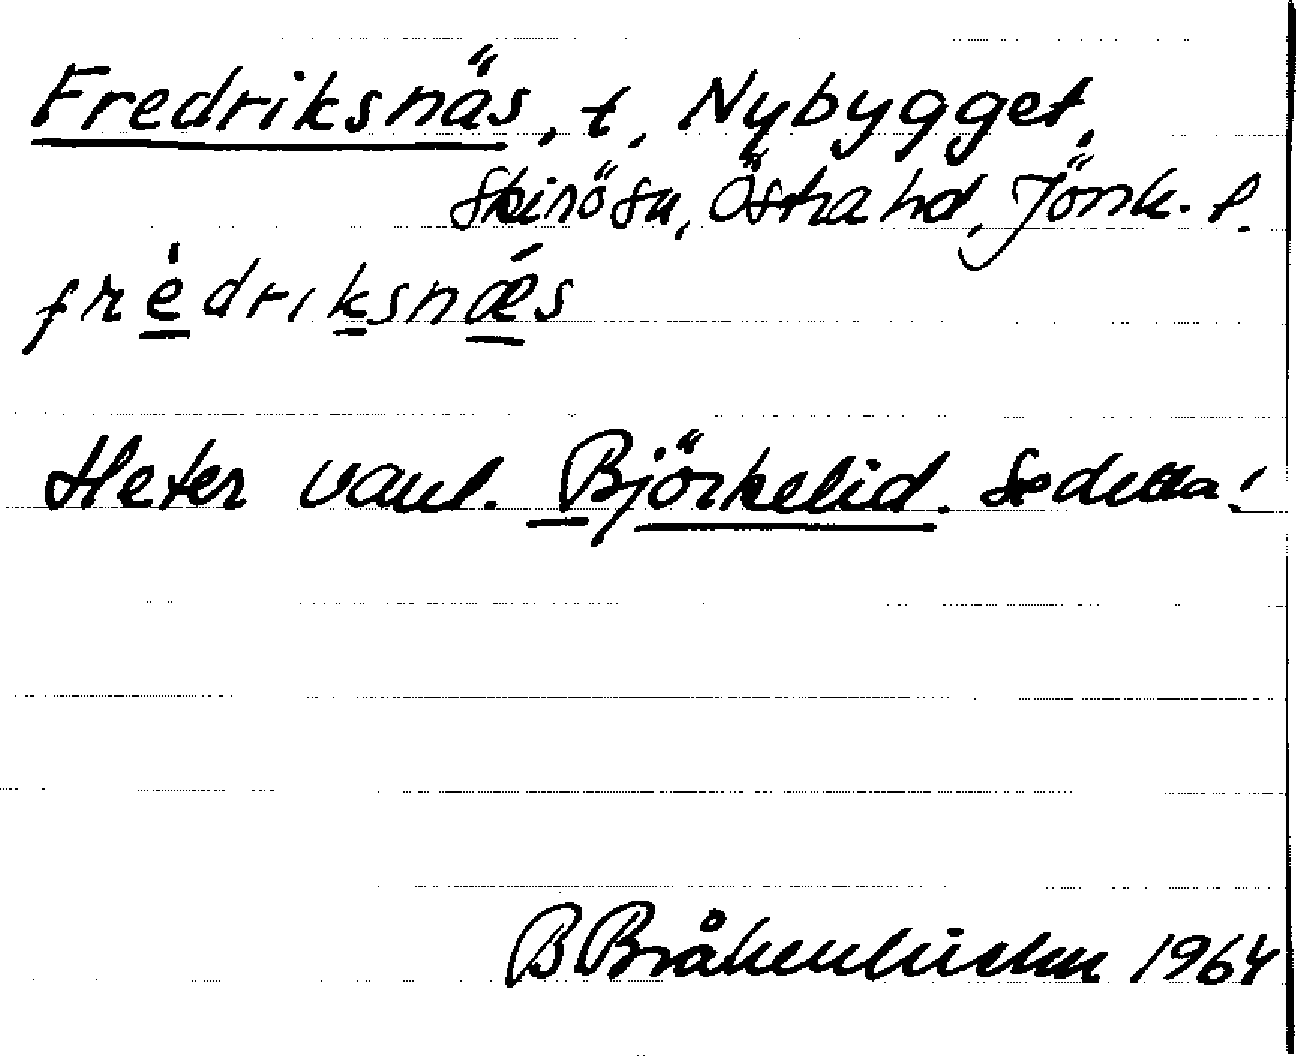 Fredriksnäs, t, Nybygget,
Skirö sn, Östra hd, Jönk. l.
frèdriksnǽs
Heter vanl. Björkelid. Se detta!
B Bråkenhielm 1964